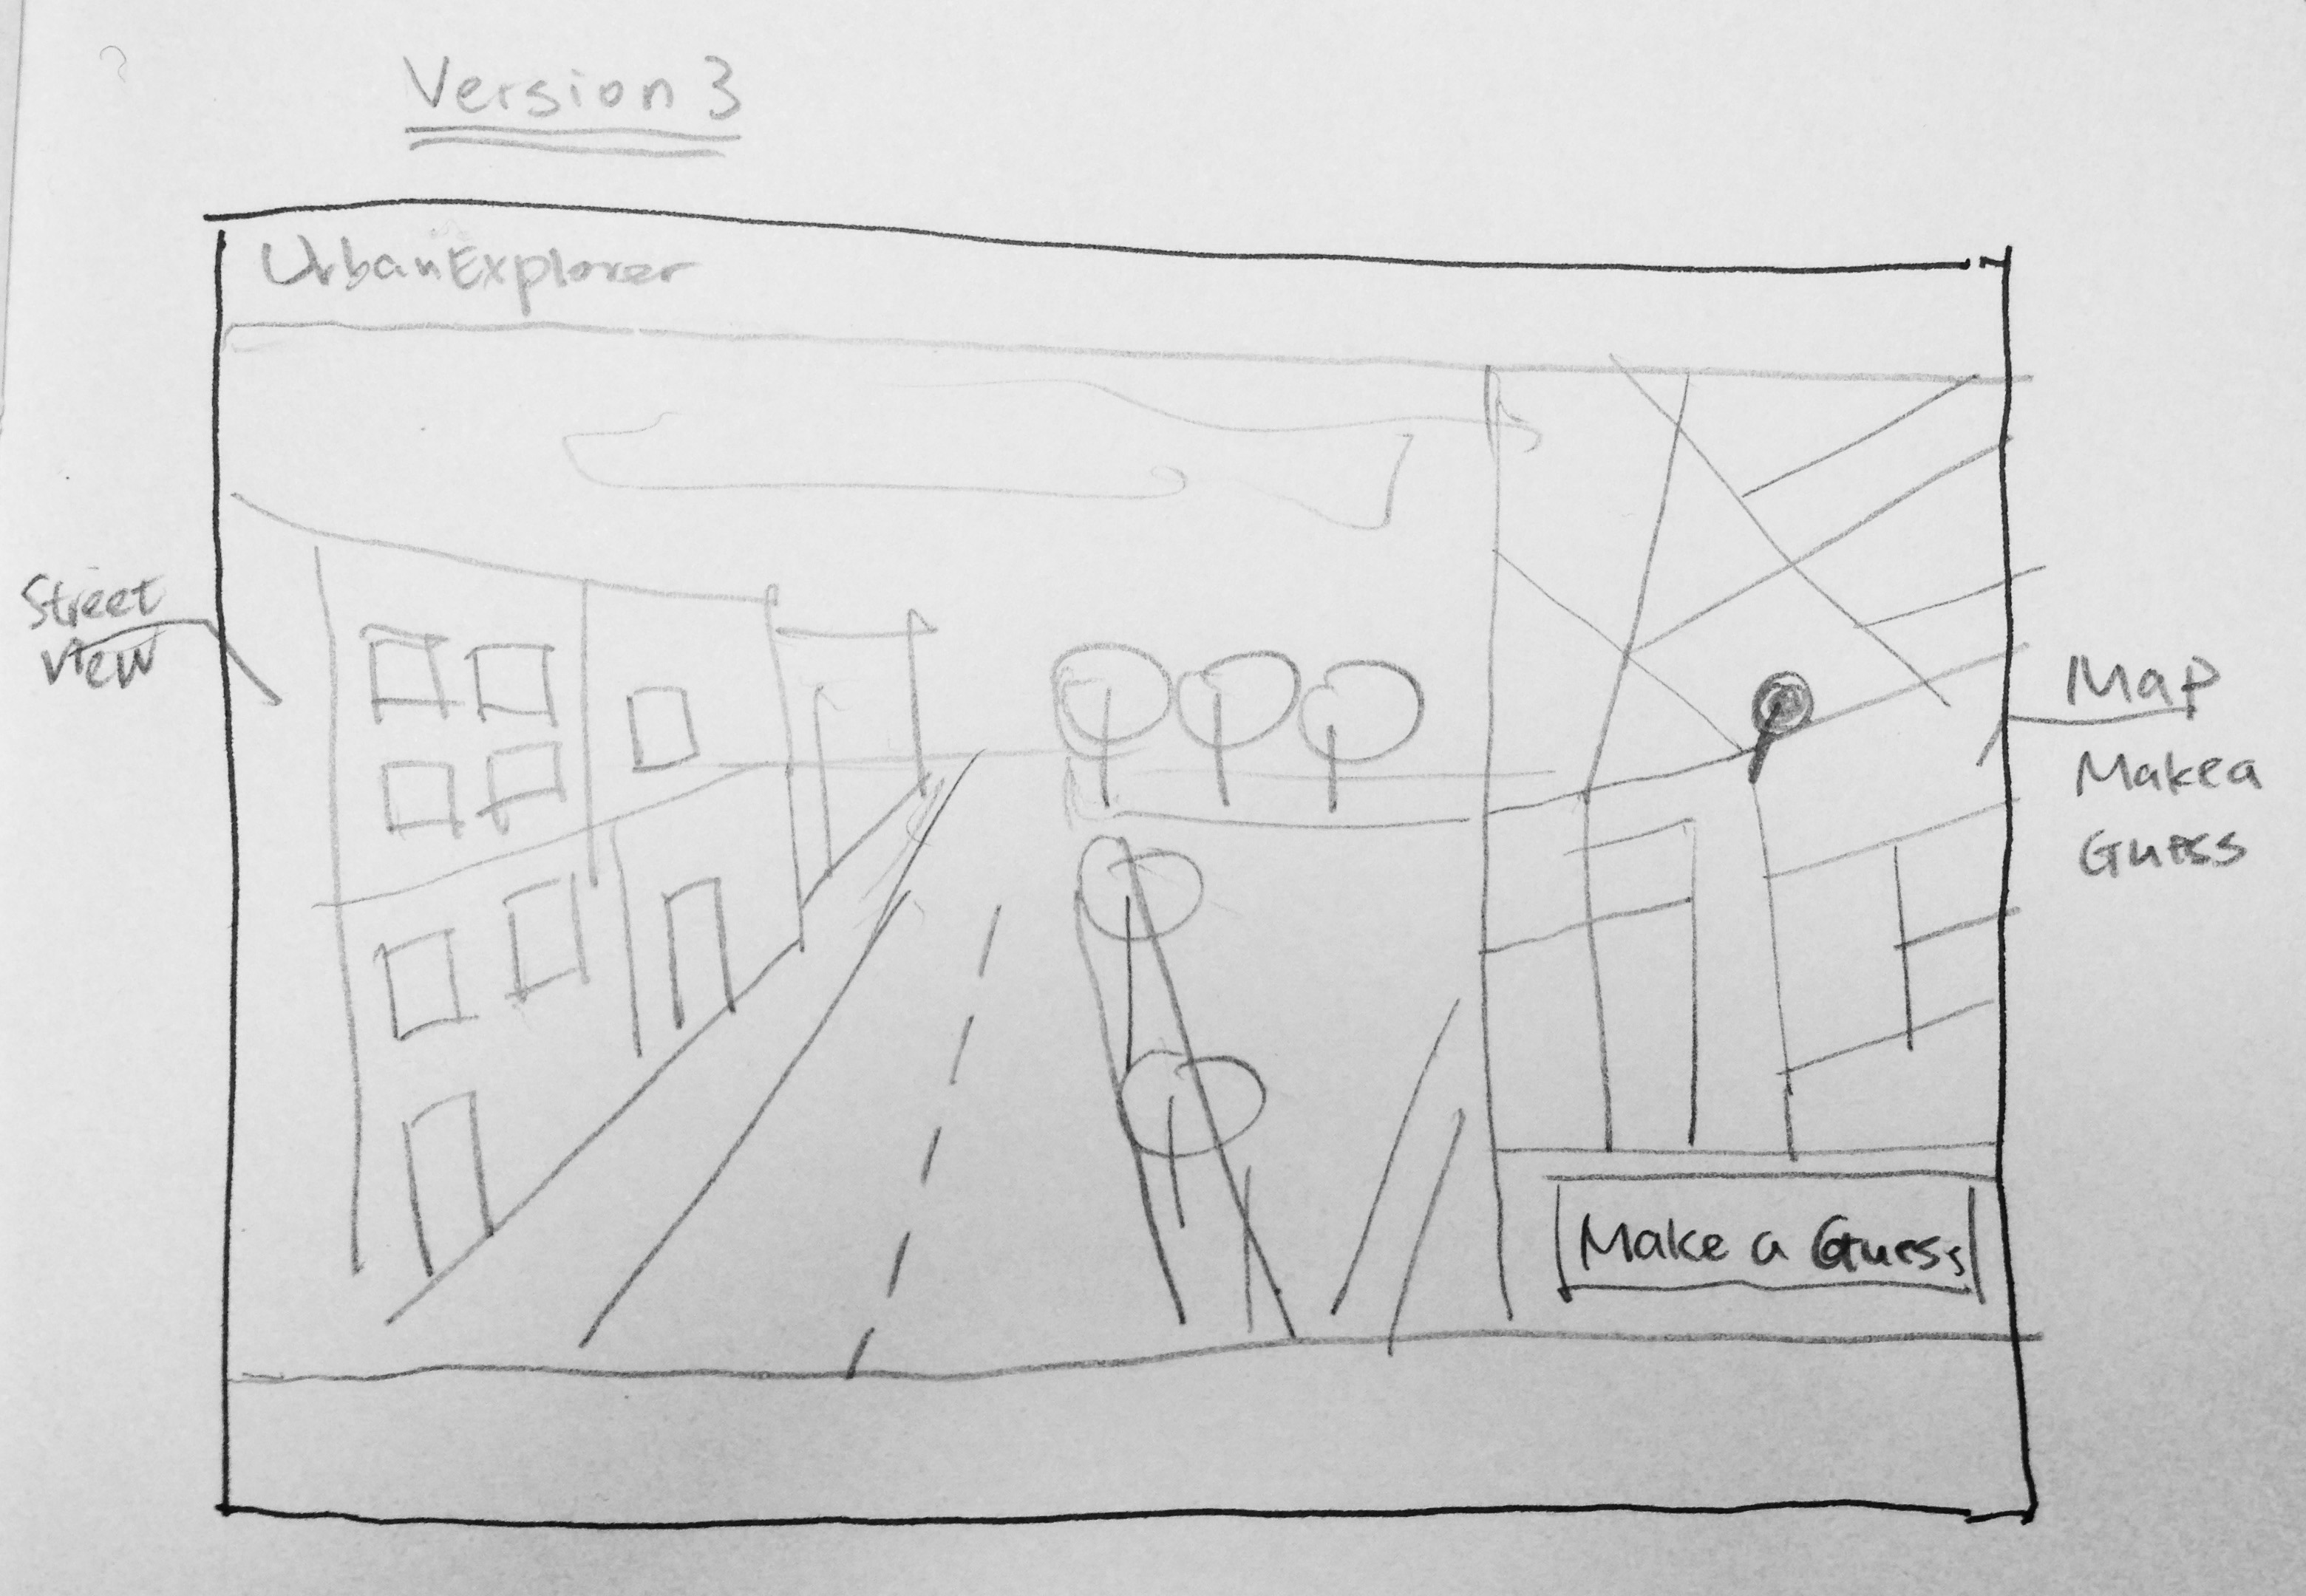 Version 3
UrbanExplorer
Street
View
Map
Make a
Guess
Make a Guess